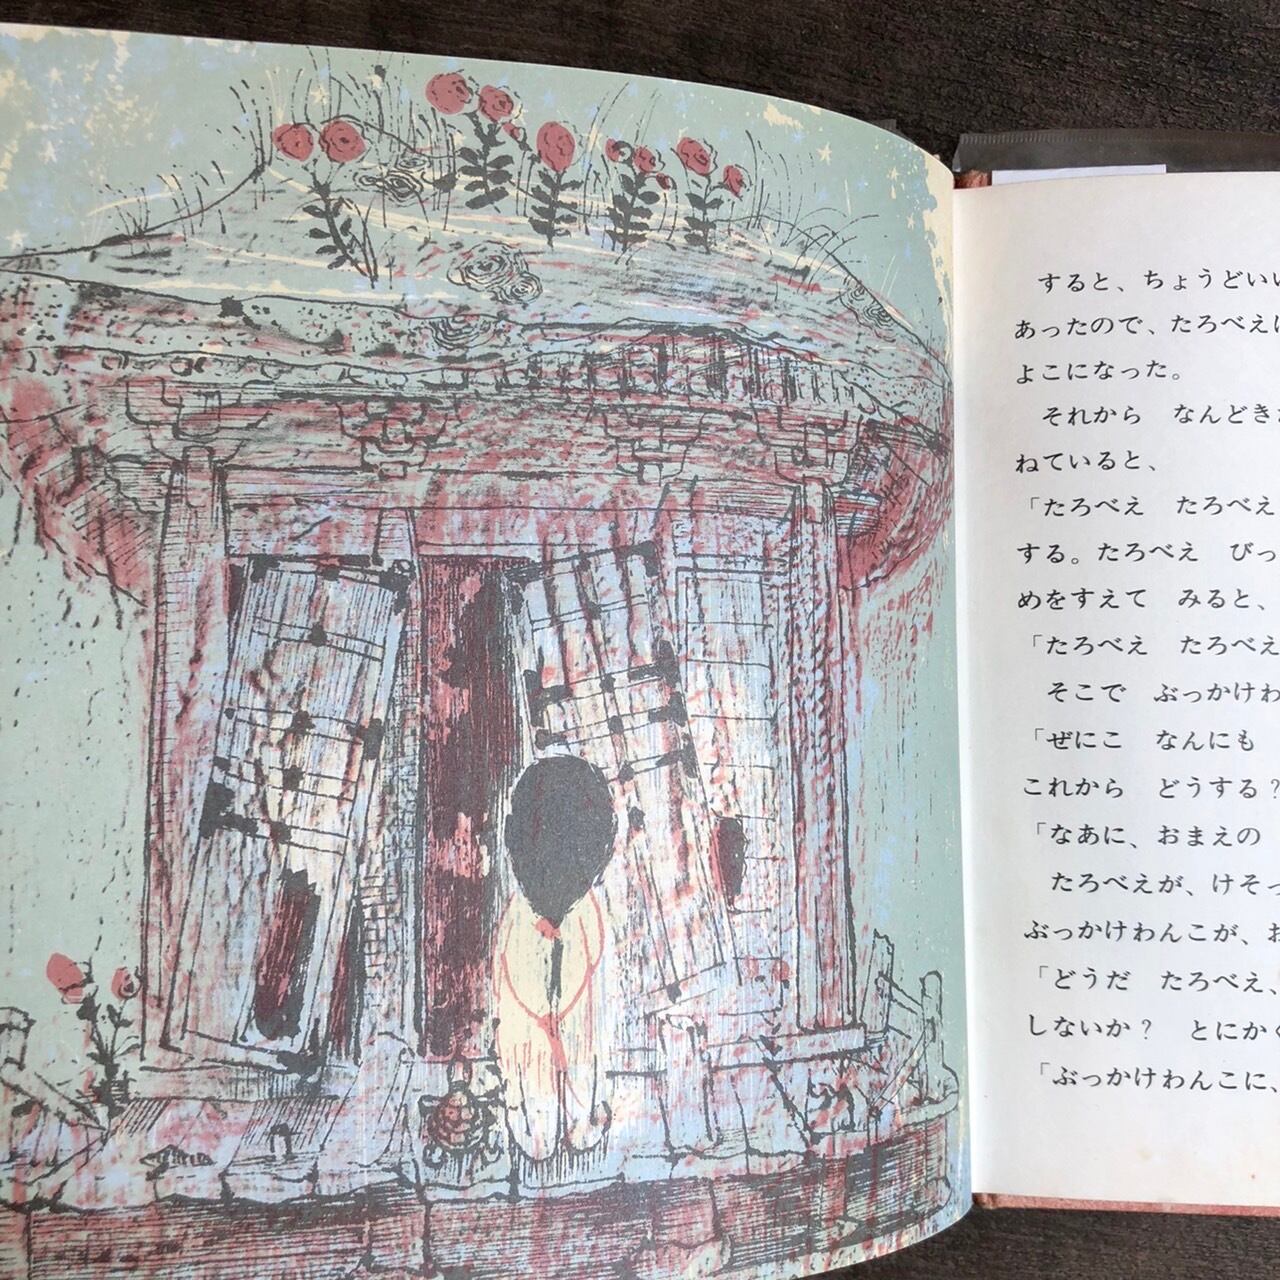 すると、ちょうどいい
あったので、たろべえ
よこになった。
それから　なんどき
ねていると、
「たろべえ　たろべえ
する。たろべえ　びっ
めをすえて　みると、
「たろべえ　たろべえ
そこで　ぶっかけわ
「ぜにこ　なんにも
これから　どうする？
「なあに、おまえの
たろべえが、けそっ
ぶっかけわんこが、お
「どうだ　たろべえ、
しないか？　とにかく
「ぶっかけわんこに、